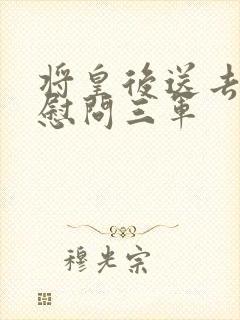 将皇後送去
慰問三軍
穆光宗